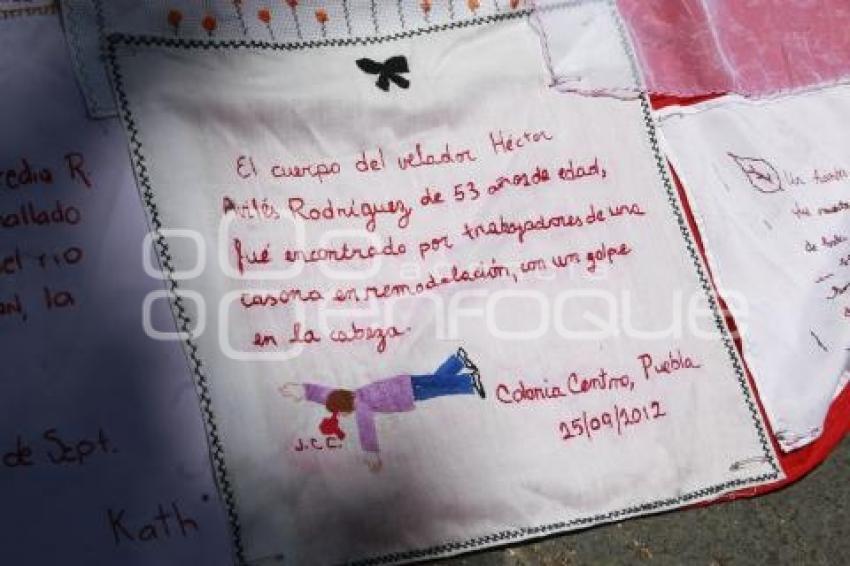 El cuerpo del velador Héctor
Avilés Rodríguez de 53 años de edad,
fué encontrado por trabajadores de una
casona en remodelación, con un golpe
en la cabeza.
Colonia Centro, Puebla
25/09/2012
J.C.C.
redia R
hallado
el rio
an, la
de Sept.
Kath
agencia
enfoque